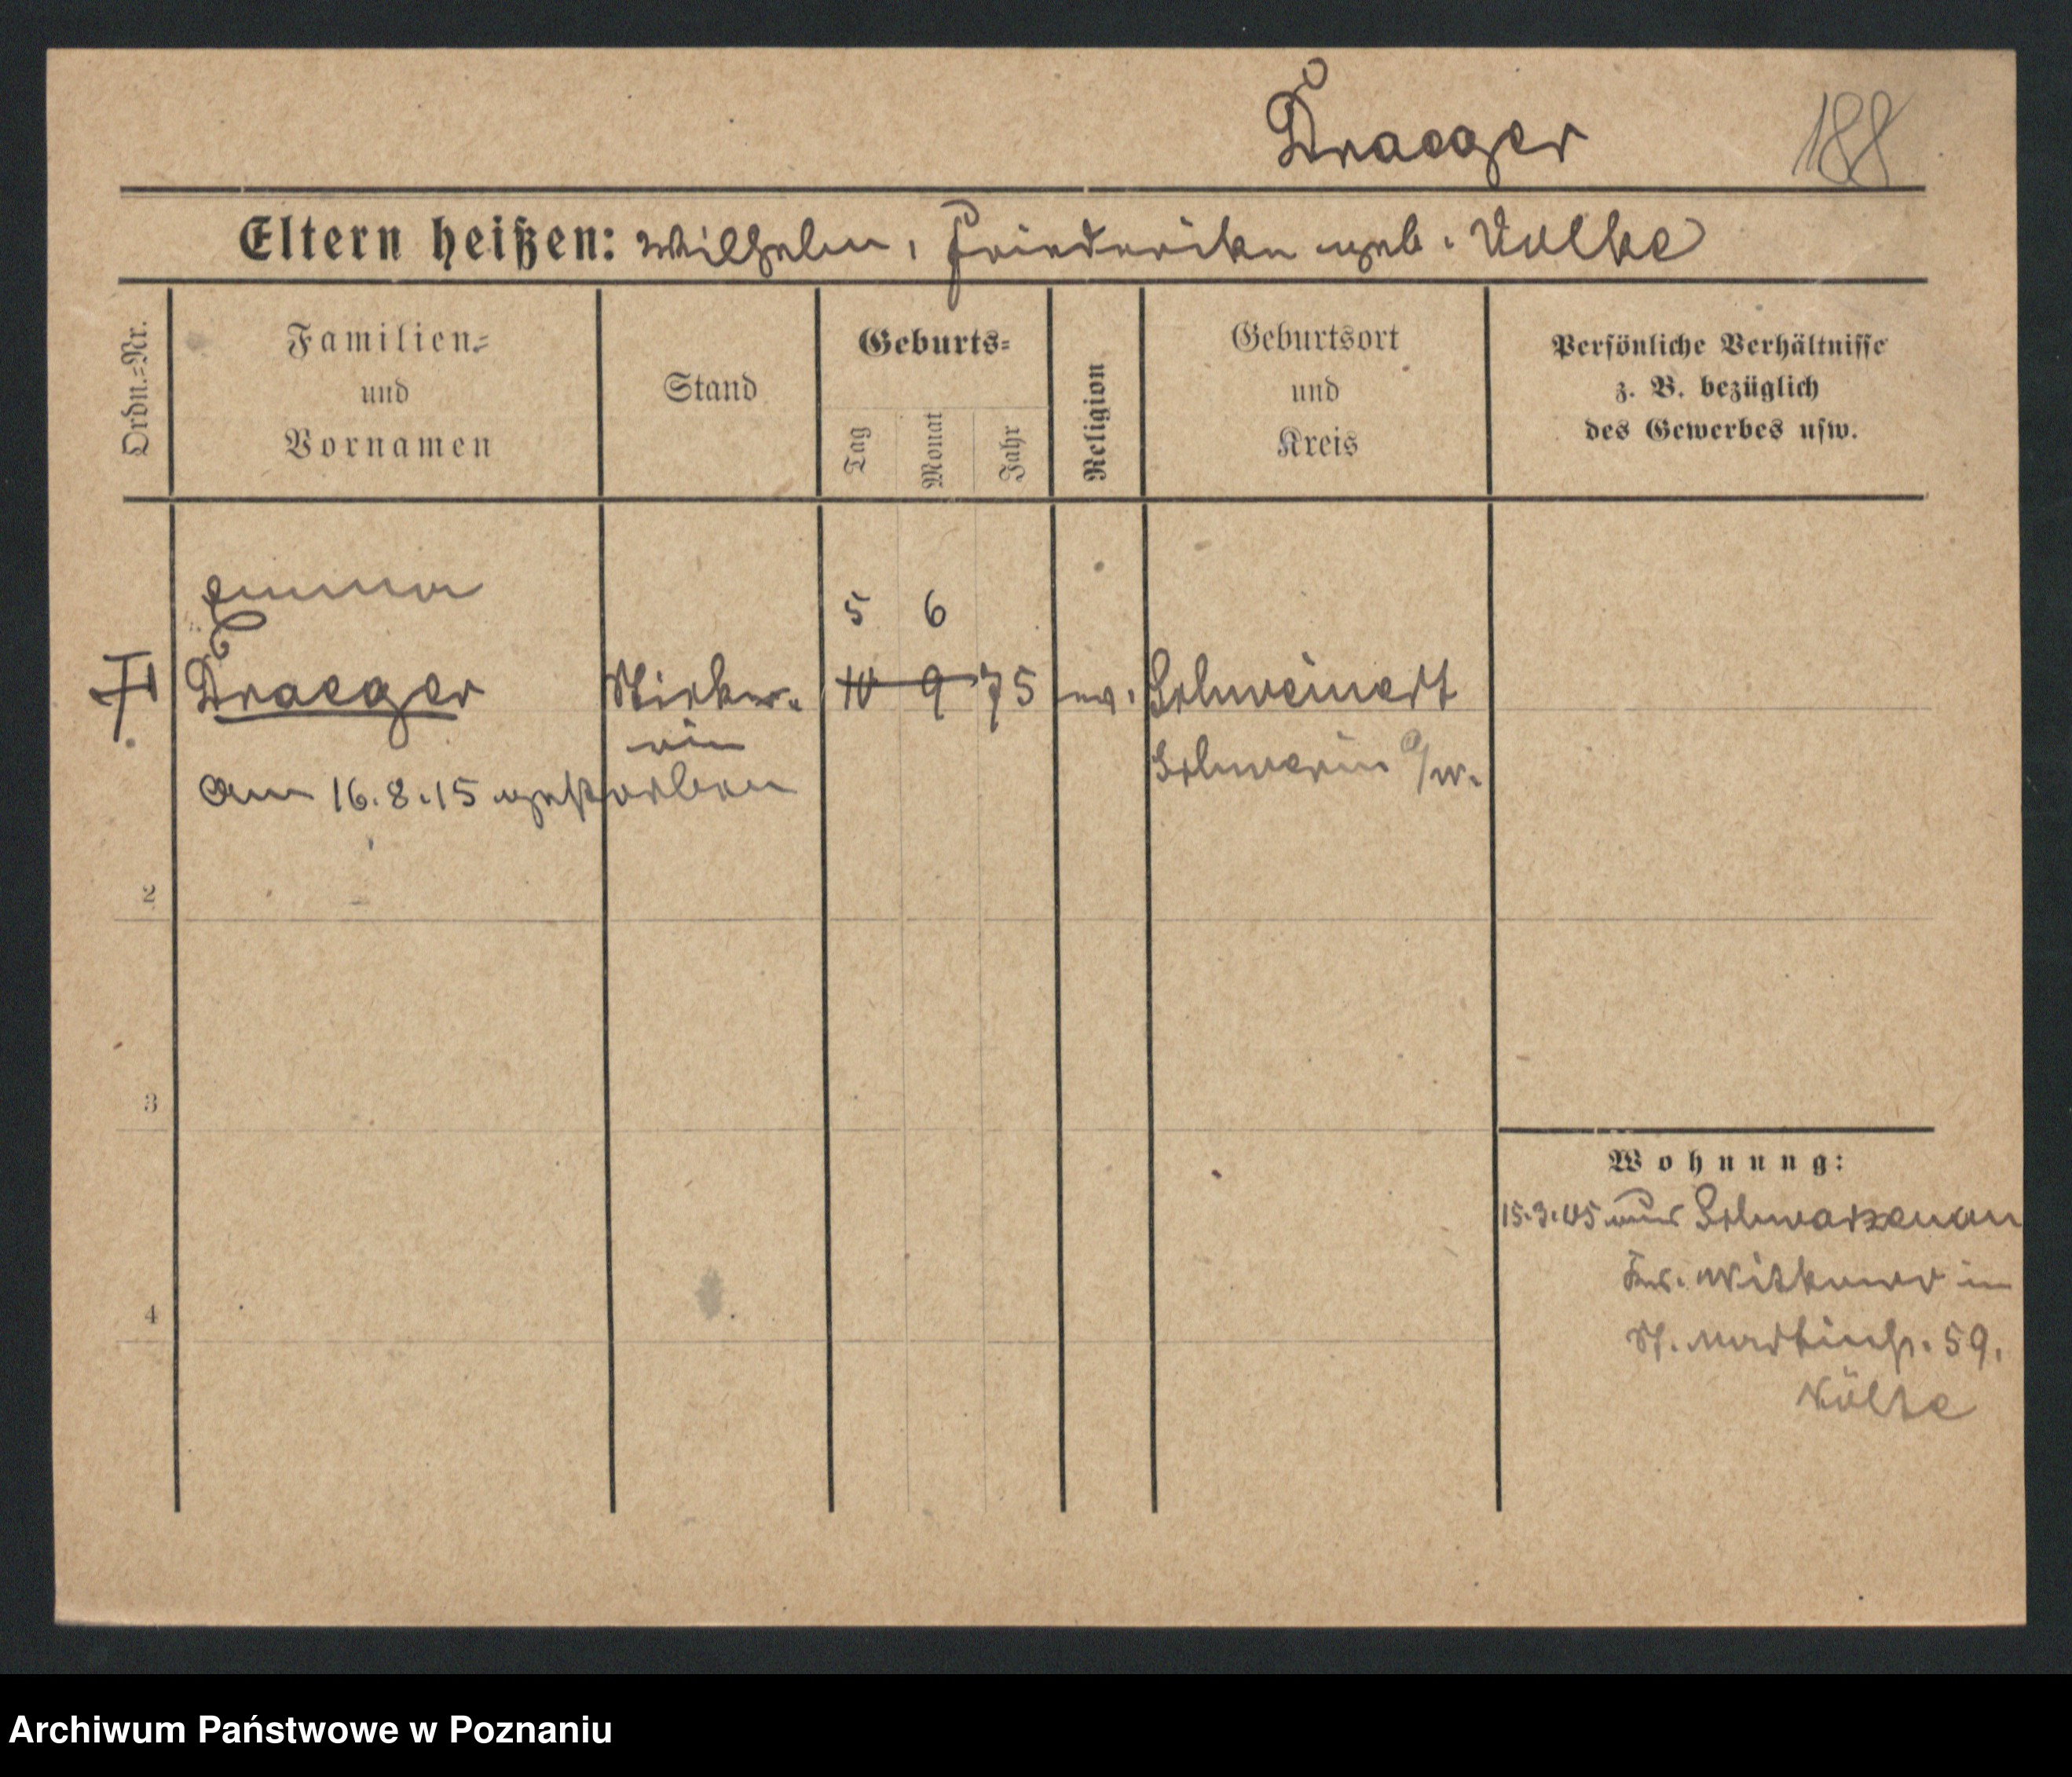 Draeger 188
Eltern heißen: Wilhelm, Friederike geb. Volke
Ordn.=Nr.
Familien=
und
Vornamen
Stand
Geburts=
Tag
Monat
Jahr
Religion
Geburtsort
und
Kreis
Persönliche Verhältnisse
z. B. bezüglich
des Gewerbes usw.
Emma
5 6
Draeger Sticker- 10 9 75 ev. Schweinert
ein Schwerin a/W.
am 16.8.15 gestorben
2
3
4
Wohnung:
15.3.05 aus Schwarzenau
Kr. Witkowo in
St. Martinstr. 59.